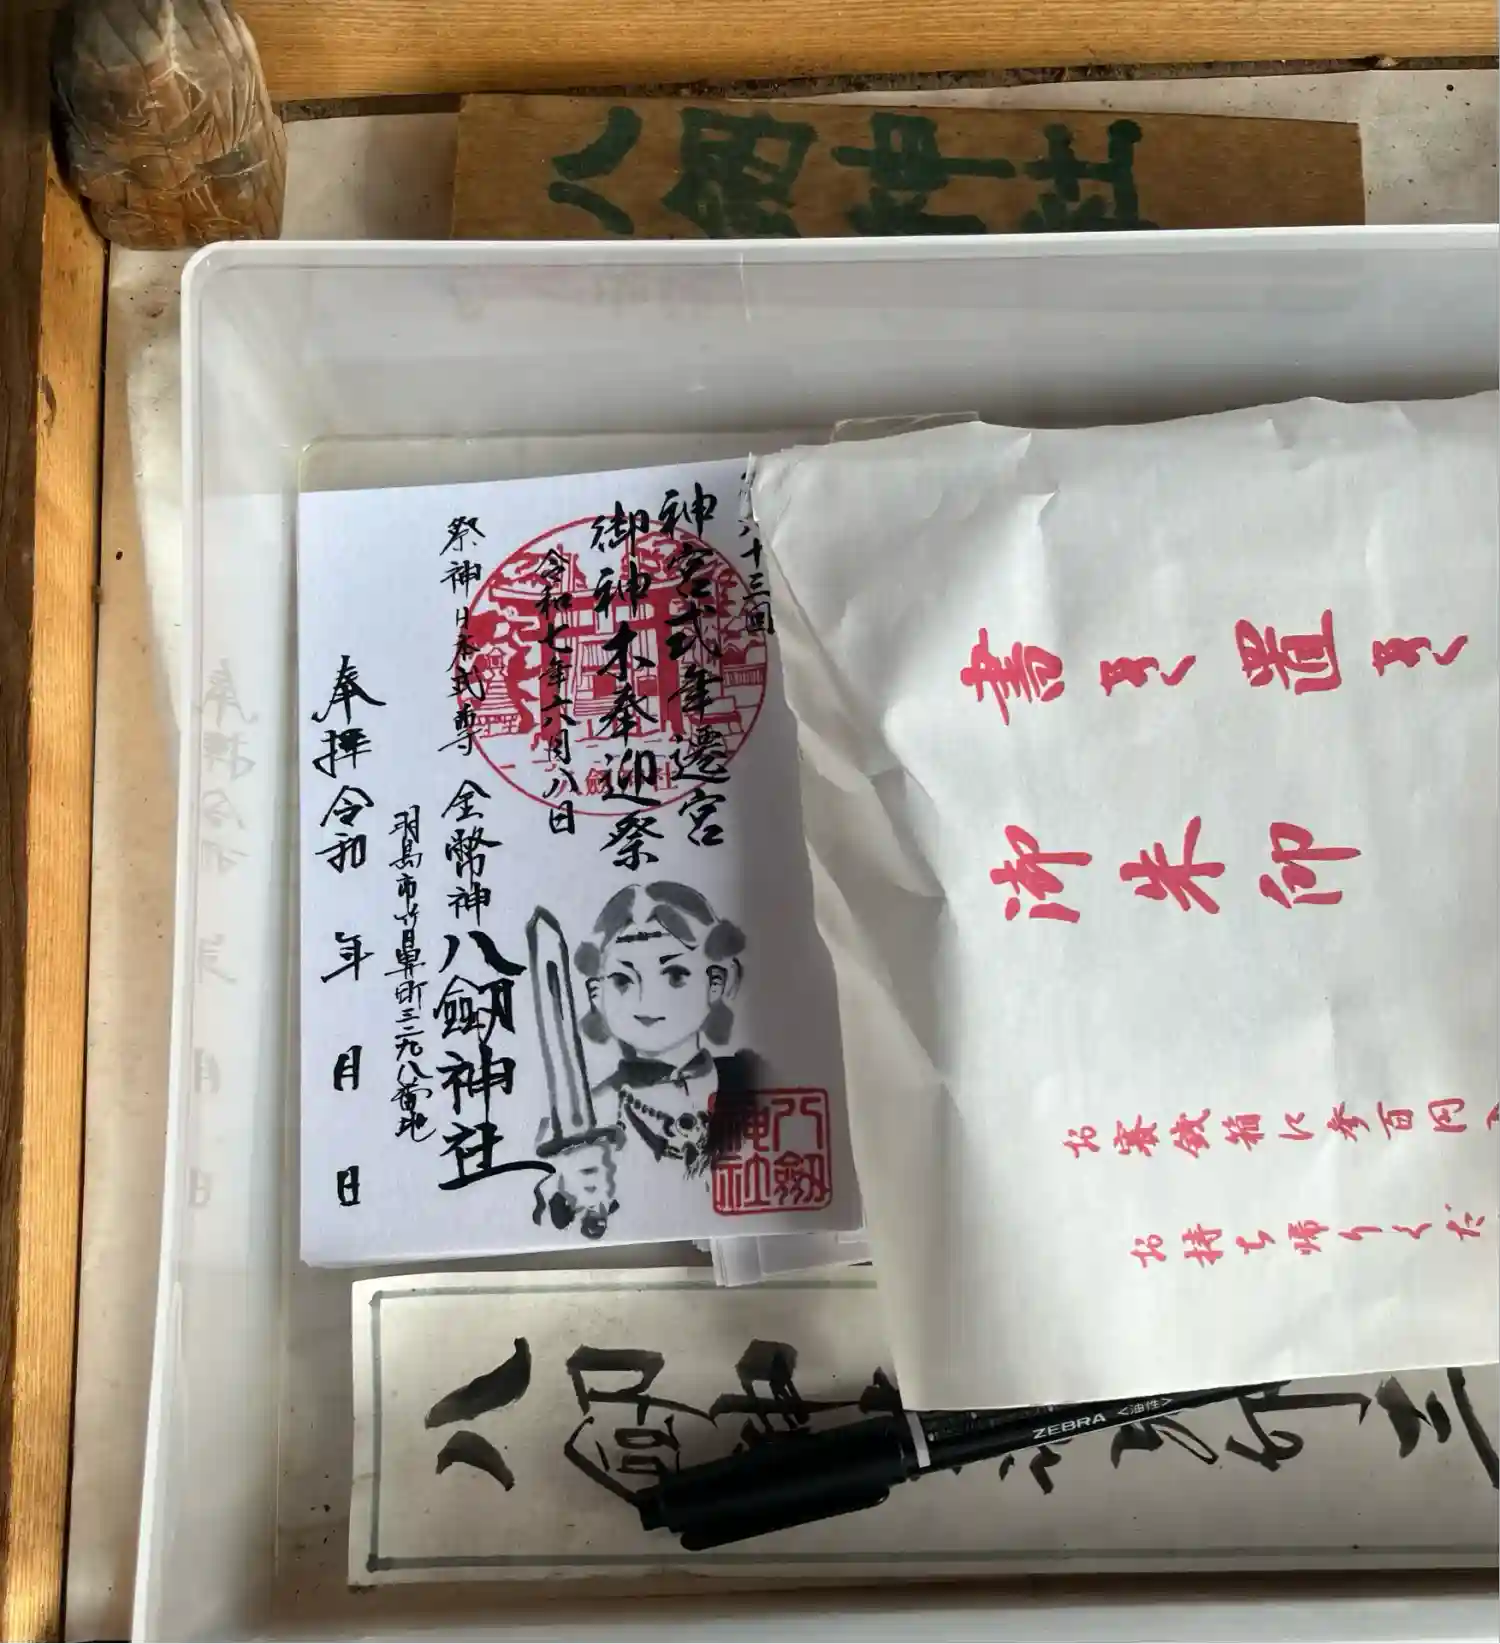 八劔神社
六十三回
神宮式年遷宮
御神木奉迎祭
令和七年六月八日
祭神日本武尊
金幣神八劔神社
羽島市竹鼻町三二九八番地
奉拝令和 年 月 日
八劔神社
八劔神社
書き置き
御朱印
お賽銭箱に参百円
お持ち帰りくだ
八劔神
ZEBRA <油性>